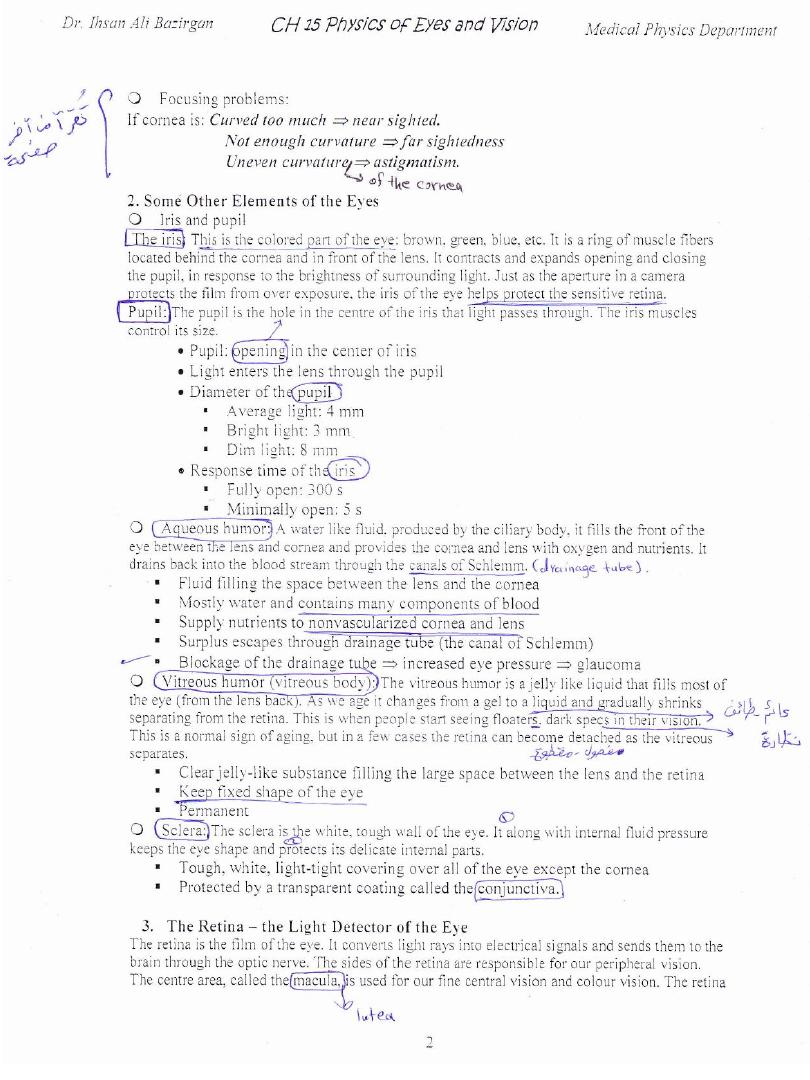 Dr. Ihsan Ali Bazirgan CH 15 Physics of Eyes and Vision Medical Physics Department
❍ Focusing problems:
If cornea is: Curved too much ⇒ near sighted.
Not enough curvature ⇒ far sightedness
Uneven curvature ⇒ astigmatism.
of the cornea
2. Some Other Elements of the Eyes
❍ Iris and pupil
The iris: This is the colored part of the eye: brown, green, blue, etc. It is a ring of muscle fibers
located behind the cornea and in front of the lens. It contracts and expands opening and closing
the pupil, in response to the brightness of surrounding light. Just as the aperture in a camera
protects the film from over exposure, the iris of the eye helps protect the sensitive retina.
Pupil: The pupil is the hole in the centre of the iris that light passes through. The iris muscles
control its size.
• Pupil: opening in the center of iris
• Light enters the lens through the pupil
• Diameter of the pupil
▪ Average light: 4 mm
▪ Bright light: 3 mm
▪ Dim light: 8 mm
• Response time of the iris
▪ Fully open: 300 s
▪ Minimally open: 5 s
❍ Aqueous humor: A water like fluid, produced by the ciliary body, it fills the front of the
eye between the lens and cornea and provides the cornea and lens with oxygen and nutrients. It
drains back into the blood stream through the canals of Schlemm. (drainage tube).
▪ Fluid filling the space between the lens and the cornea
▪ Mostly water and contains many components of blood
▪ Supply nutrients to nonvascularized cornea and lens
▪ Surplus escapes through drainage tube (the canal of Schlemm)
▪ Blockage of the drainage tube ⇒ increased eye pressure ⇒ glaucoma
❍ Vitreous humor (vitreous body): The vitreous humor is a jelly like liquid that fills most of
the eye (from the lens back). As we age it changes from a gel to a liquid and gradually shrinks
separating from the retina. This is when people start seeing floaters, dark specs in their vision.
This is a normal sign of aging, but in a few cases the retina can become detached as the vitreous
separates.
▪ Clear jelly-like substance filling the large space between the lens and the retina
▪ Keep fixed shape of the eye
▪ Permanent
❍ Sclera: The sclera is the white, tough wall of the eye. It along with internal fluid pressure
keeps the eye shape and protects its delicate internal parts.
▪ Tough, white, light-tight covering over all of the eye except the cornea
▪ Protected by a transparent coating called the conjunctiva.
3. The Retina – the Light Detector of the Eye
The retina is the film of the eye. It converts light rays into electrical signals and sends them to the
brain through the optic nerve. The sides of the retina are responsible for our peripheral vision.
The centre area, called the macula, is used for our fine central vision and colour vision. The retina
lutea
2